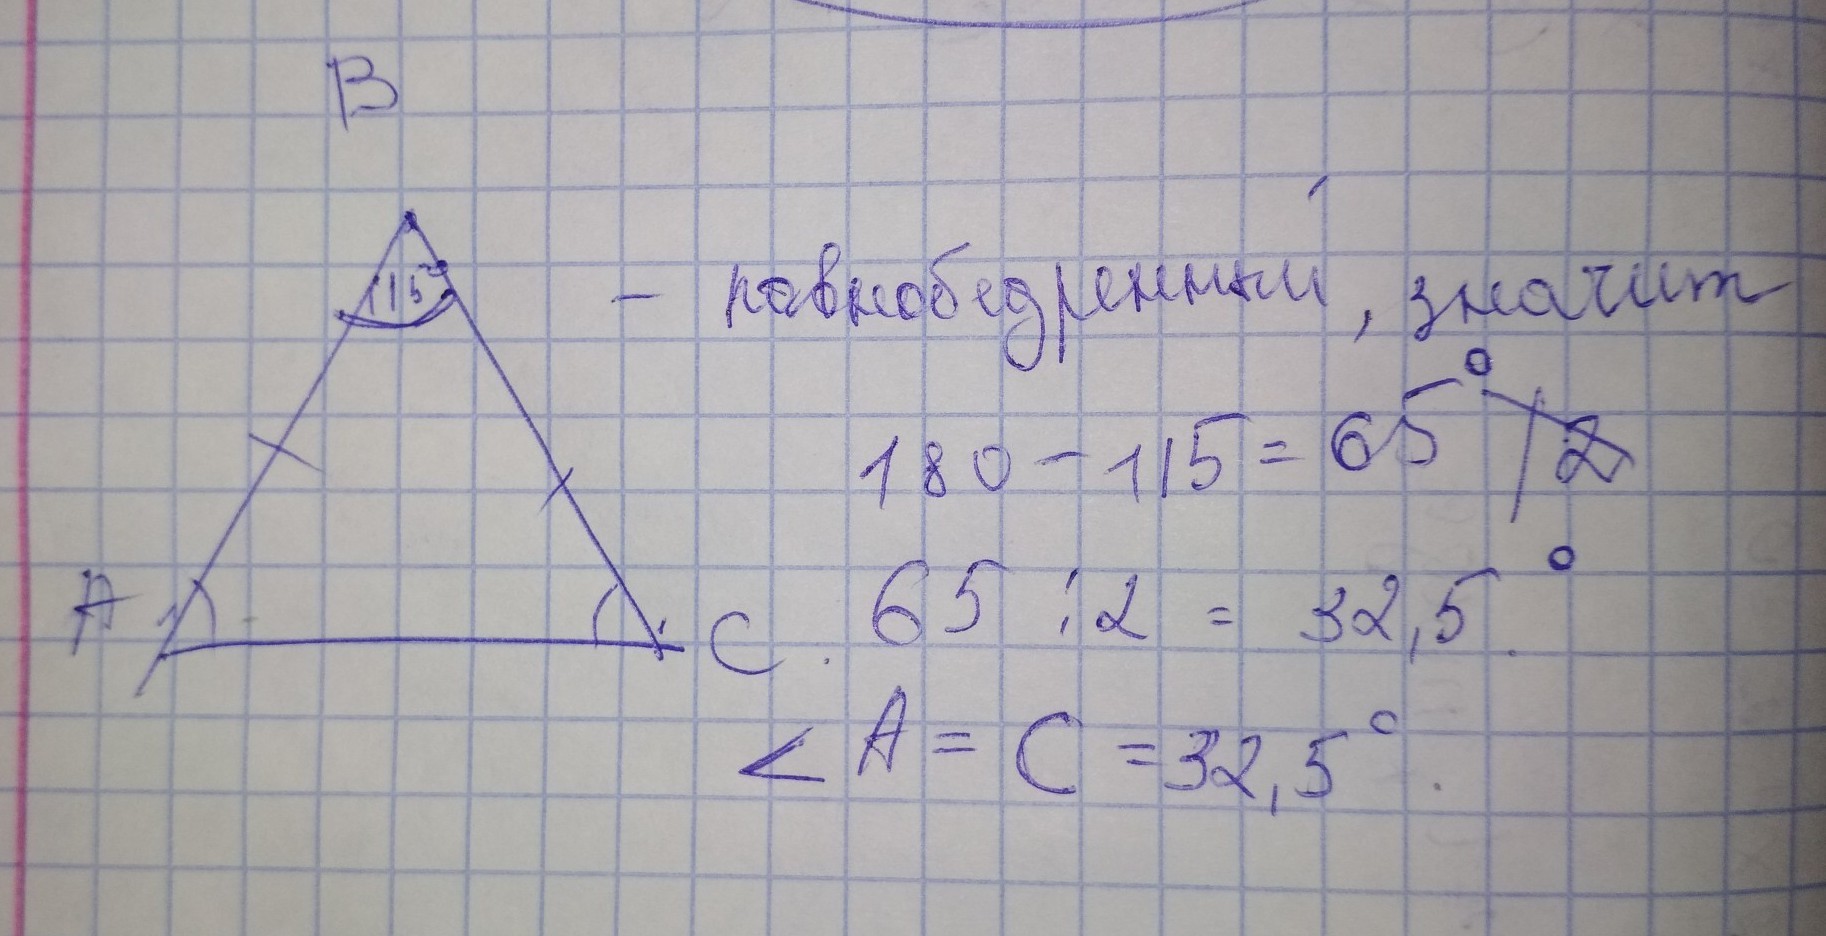 B
115°
- равнобедренный, значит
180 - 115 = 65°
65 : 2 = 32,5°.
A
C.
< A = C = 32,5°.